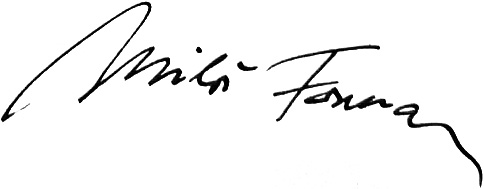 Miloš Forman